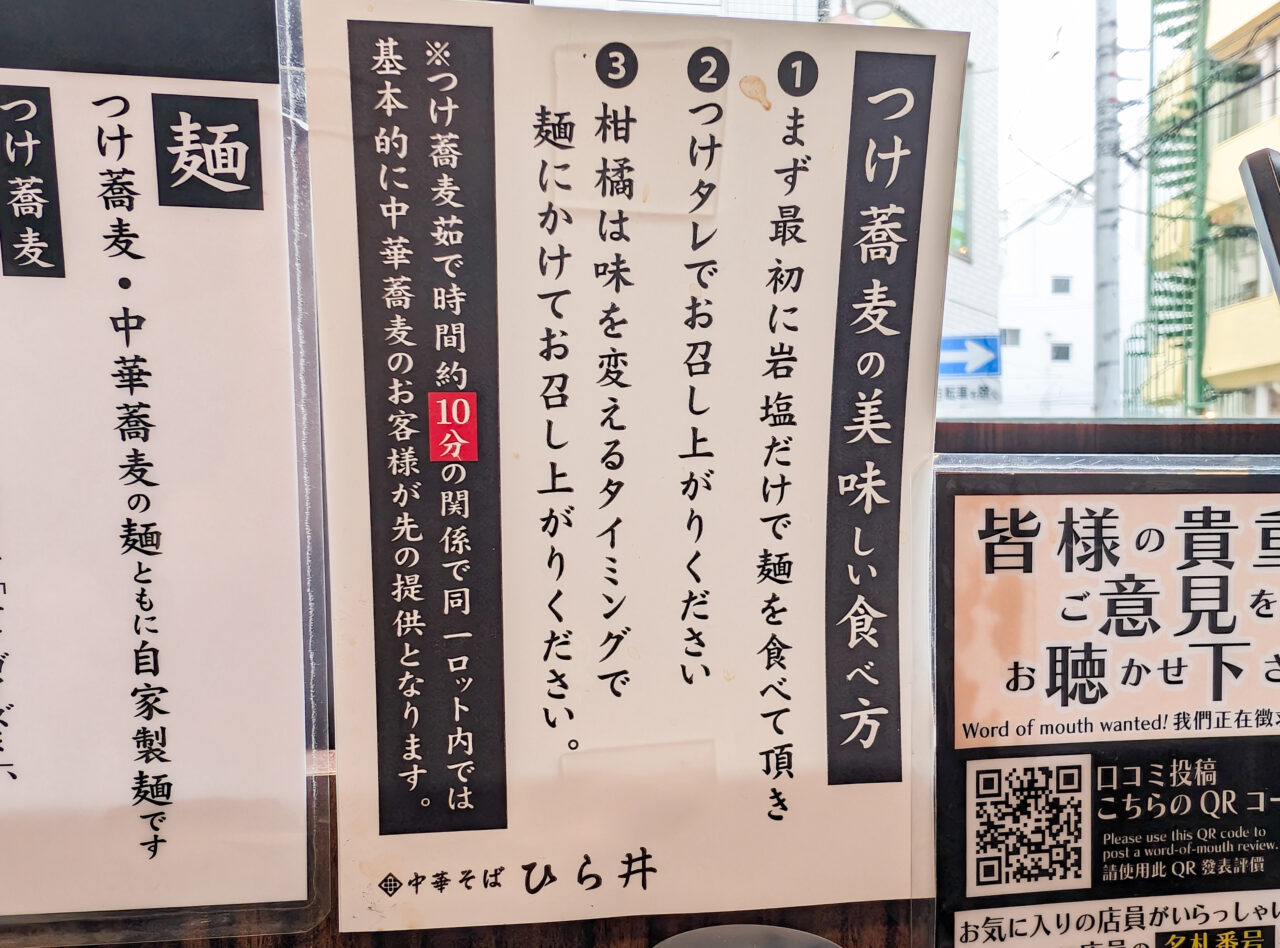 つけ蕎麦の美味しい食べ方
❶まず最初に岩塩だけで麺を食べて頂き
❷つけタレでお召し上がりください
❸柑橘は味を変えるタイミングで
麺にかけてお召し上がりください。
※つけ蕎麦茹で時間約10分の関係で同一ロット内では
基本的に中華蕎麦のお客様が先の提供となります。
中華そば ひら井
麺
つけ蕎麦・中華蕎麦の麺ともに自家製麺です
つけ蕎麦
皆様の貴重
ご意見を
お聴かせ下さ
Word of mouth wanted! 我們正在徴
口コミ投稿
こちらのQRコー
Please use this QR code to
post a word-of-mouth review.
請使用此 QR 發表評價
お気に入りの店員がいらっしゃい
店員の 名札番号